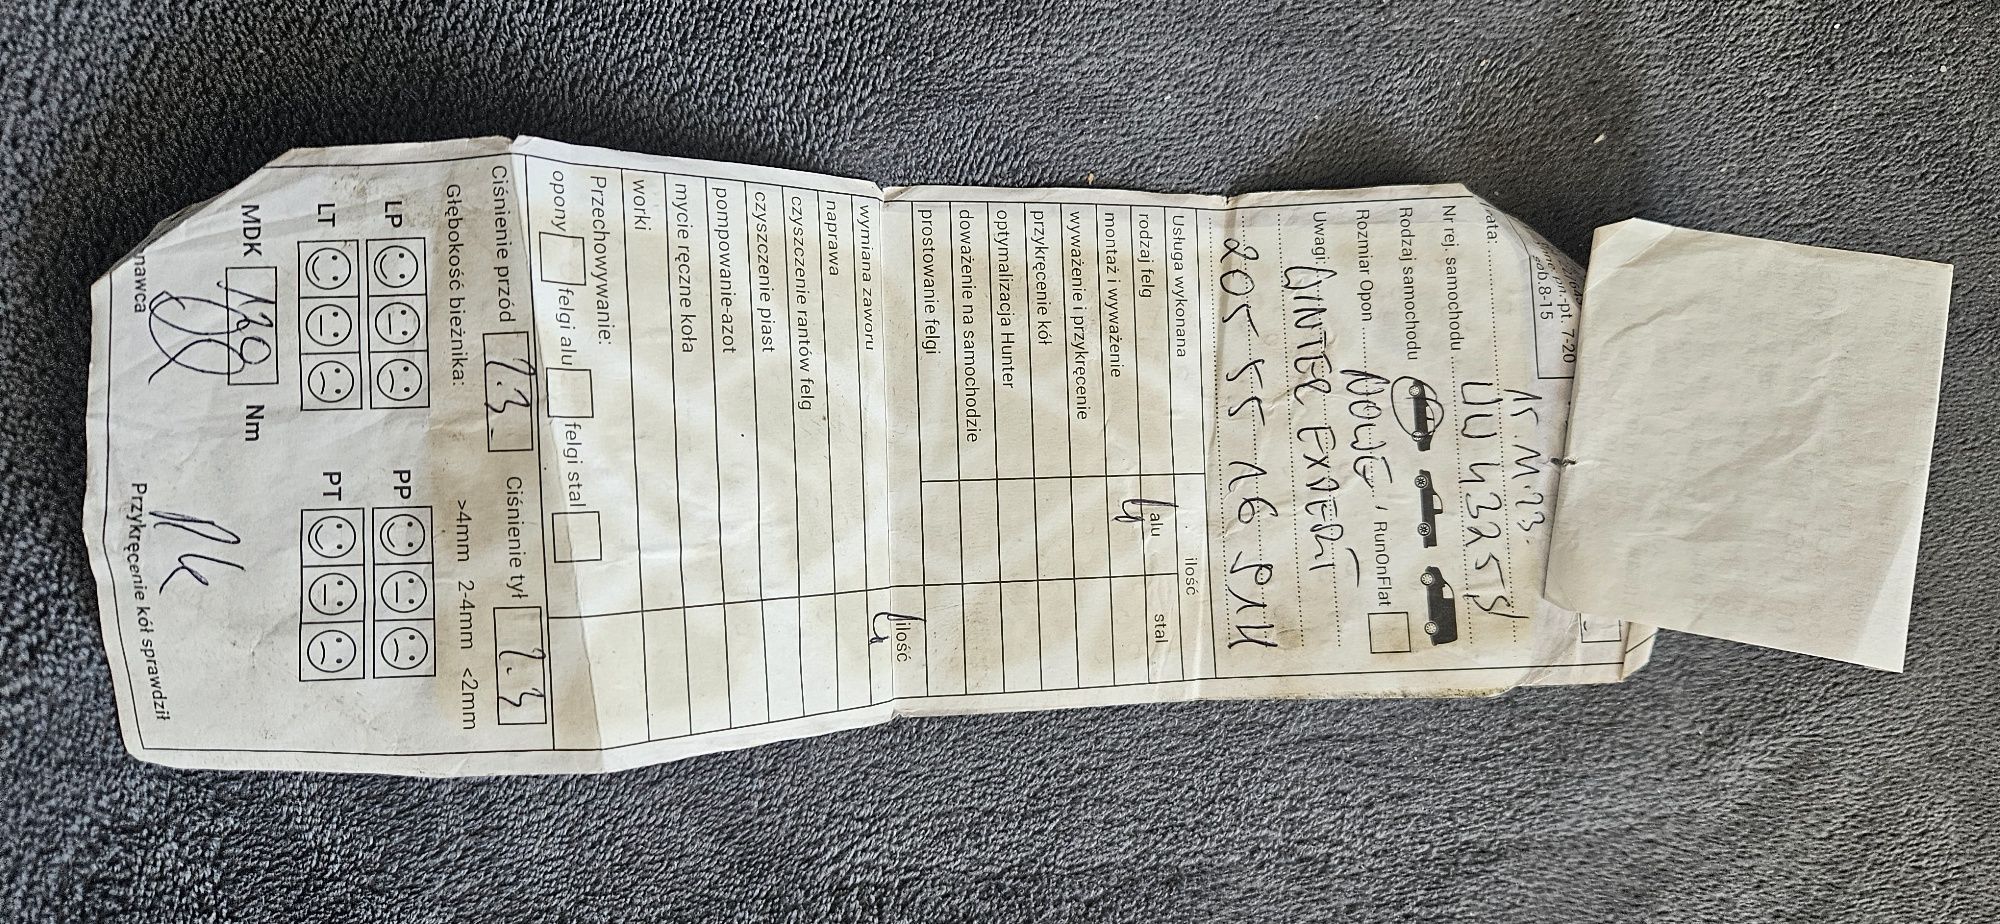 pon.-pt. 7-20
sob.8-15
15.11.23.
Nr rej. samochodu
Rodzaj samochodu
Rozmiar Opon NOWE / RunOnFlat
Uwagi: WINTER EXPERT
205 55 16 91H
Usługa wykonana ilość
rodzaj felg alu stal
montaż i wyważenie 4
wyważenie i przykręcenie
przykręcenie kół
optymalizacja Hunter
doważenie na samochodzie
prostowanie felgi
ilość
wymiana zaworu 4
naprawa
czyszczenie rantów felg
czyszczenie piast
pompowanie-azot
mycie ręczne koła
worki
Przechowywanie:
opony felgi alu felgi stal
Ciśnienie przód 2.3 Ciśnienie tył 2.3
Głębokość bieżnika: >4mm 2-4mm <2mm
LP PP
LT PT
MDK 120 Nm
Przykręcenie kół sprawdził